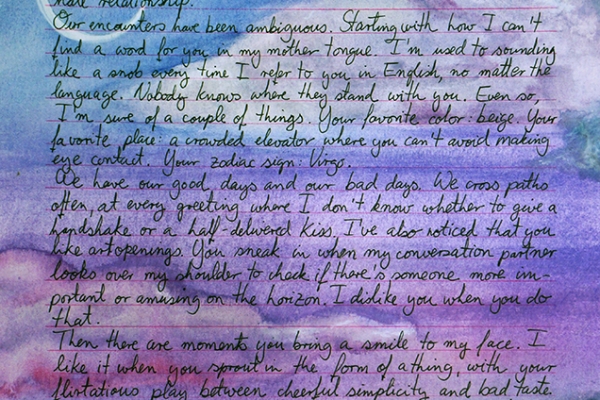 hate relationship.
Our encounters have been ambiguous. Starting with how I can't
find a word for you in my mother tongue. I'm used to sounding
like a snob every time I refer to you in English, no matter the
language. Nobody knows where they stand with you. Even so,
I'm sure of a couple of things. Your favorite color: beige. Your
favorite place: a crowded elevator where you can't avoid making
eye contact. Your zodiac sign: Virgo.
We have our good days and our bad days. We cross paths
often, at every greeting where I don't know whether to give a
handshake or a half-delivered kiss. I've also noticed that you
like art openings. You sneak in when my conversation partner
looks over my shoulder to check if there's someone more im-
portant or amusing on the horizon. I dislike you when you do
that.
Then there are moments you bring a smile to my face. I
like it when you sprout in the form of a thing, with your
flirtatious play between cheerful simplicity and bad taste.